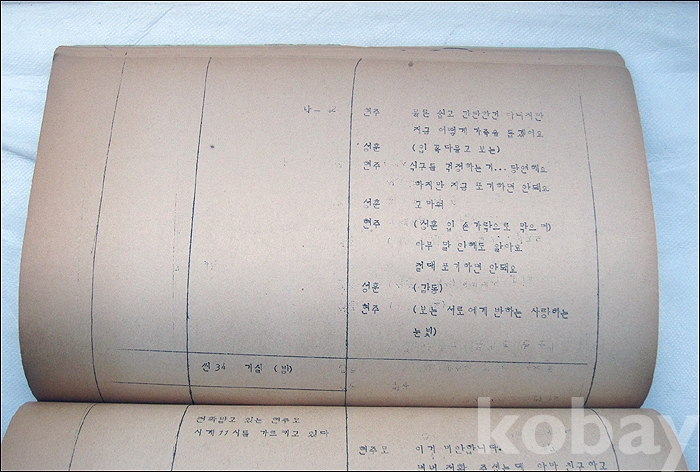 현주 쉽고 간단한건 아니지만
지금 어떻게 가족을 돕겠어요
성훈 (입 꼭 다물고 보는)
현주 (식구들 걱정하는거... 당연해요
하지만 지금 포기하면 안돼요
성훈 고마워
현주 (성훈 입 손가락으로 막으며)
아무 말 안해도 알아요
절대 포기하면 안돼요
성훈 (감동)
현주 (보는 서로에게 반하는 사랑하는
눈빛)
씬 34 거실 (밤)
전화받고 있는 현주모
시계 11시를 가르키고 있다
현주모 이거 미안합니다.
kobay